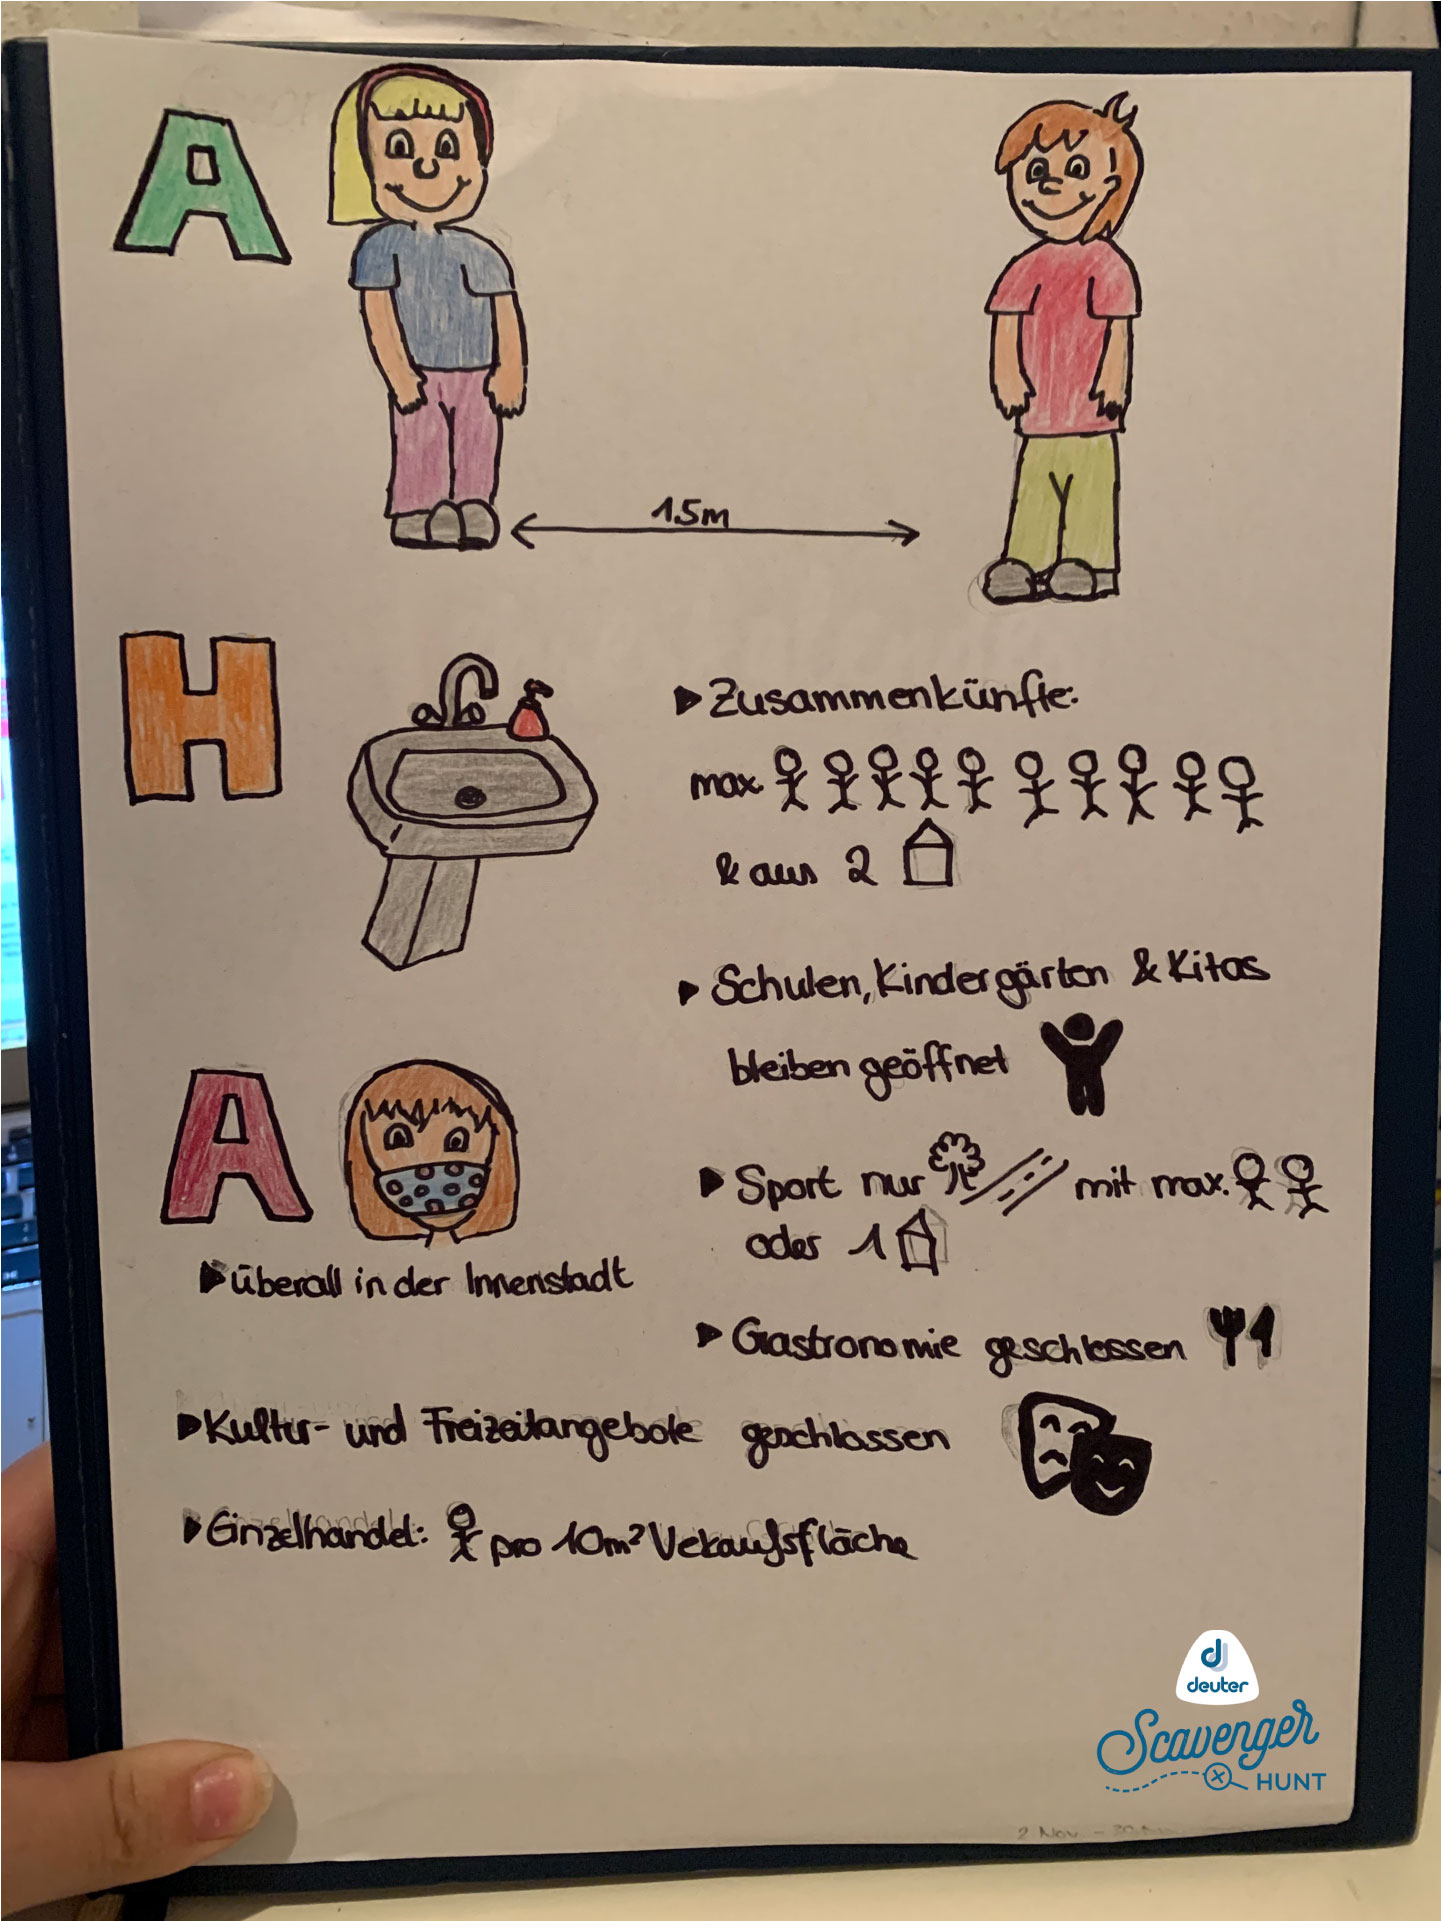 A
1.5m
H
▶ Zusammenkünfte:
max.
& aus 2
▶ Schulen, Kindergärten & Kitas
bleiben geöffnet
A
▶ Sport nur mit max.
oder 1
▶ überall in der Innenstadt
▶ Gastronomie geschlossen
▶ Kultur- und Freizeitangebote geschlossen
▶ Einzelhandel: pro 10m² Vekaufsfläche
deuter
Scavenger
HUNT
2 Nov. - 30.